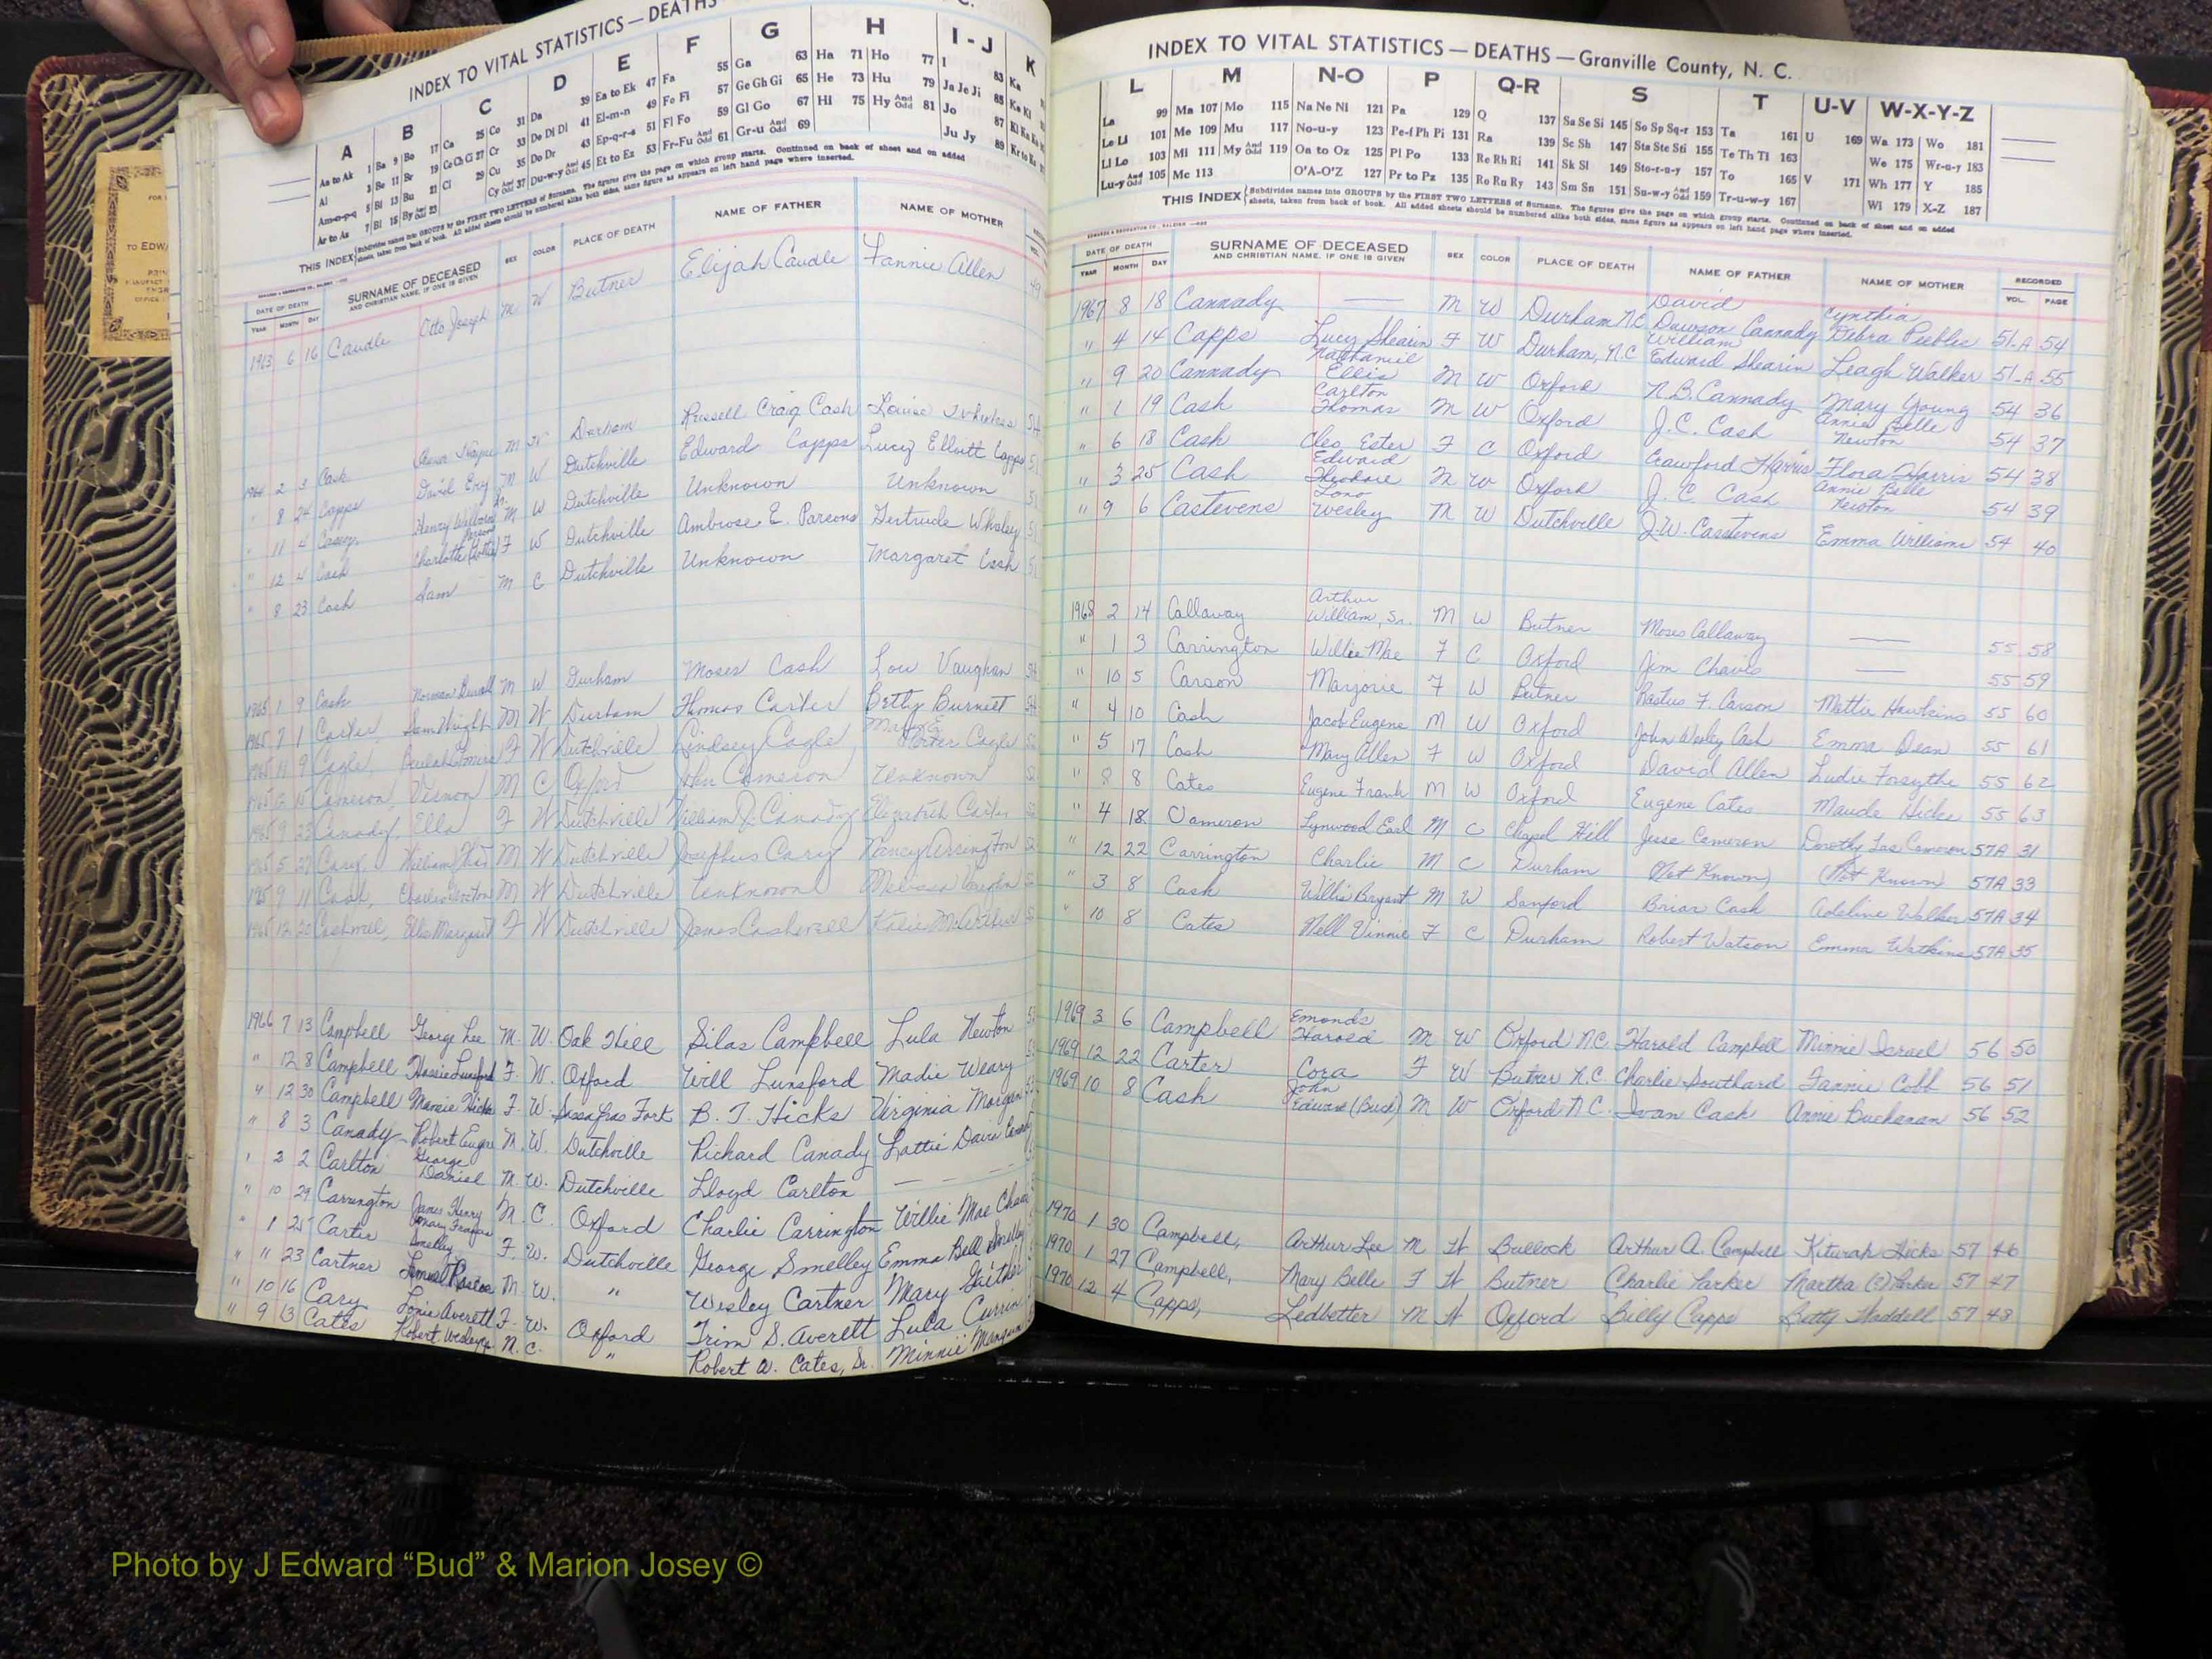 INDEX TO VITAL STATISTICS — DEATHS
A B C D E F G H I-J K
Aa to Ak 1 Ba 9 Bo 17 Ca 25 Co 31 Da 39 Ea to Ek 47 Fa 55 Ga 63 Ha 71 Ho 77 I 83 Ka
Al 3 Be 11 Br 19 Ce Ch Ci 27 Cr 33 De Di Dl 41 El-m-n 49 Fe Fi 57 Ge Gh Gi 65 He 73 Hu 79 Ja Je Ji 85
Am-n-p-q 5 Bi 13 Bu 21 Cl 29 Cu 35 Do Dr 43 Ep-q-r-s 51 Fl Fo 59 Gl Go 67 Hi 75 Hy And Odd 81 Jo 87
Ar to Az 7 Bl 15 By And Odd 23 Cy And Odd 37 Du-w-y And Odd 45 Et to Ez 53 Fr-Fu And Odd 61 Gr-u And Odd 69 Ju Jy 89
THIS INDEX Subdivides names into GROUPS by the FIRST TWO LETTERS of Surname. The figures give the page on which group starts. Continued on back of sheet and on added
sheets, taken from back of book. All added sheets should be numbered alike both sides, same figure as appears on left hand page where inserted.
DATE OF DEATH SURNAME OF DECEASED SEX COLOR PLACE OF DEATH NAME OF FATHER NAME OF MOTHER
YEAR MONTH DAY AND CHRISTIAN NAME, IF ONE IS GIVEN
1913 6 16 Caudle Otto Joseph M W Butner Elijah Caudle Fannie Allen 49
2 3 Cash Wayne M W Durham Russell Craig Cash Louise
" 8 24 Capps David Ery M W Dutchville Edward Capps Lucy Elliott Capps
" 11 4 Casey, Henry Wilborn Sr. M W Dutchville Unknown Unknown
" 12 4 Cash Charlotte Parsons F W Dutchville Ambrose E. Parsons Gertrude Whaley
" 8 23 Cash Sam M C Dutchville Unknown Margaret Cash
1965 1 9 Cash Norman Duvall M W Durham Moses Cash Lou Vaughan
1965 7 1 Carter, Sam Wright M W Durham Thomas Carter Betty Burnett
1965 11 9 Cagle, Beulah F W Dutchville Lindsey Cagle, Cagle
1965 12 15 Cameron, Vernon M C Oxford John Cameron Unknown
1965 9 23 Canady, Ella F W Dutchville William J. Canady Elizabeth Carter
1965 5 27 Cary, William M W Dutchville Josephus Cary Nancy Arrington
1965 9 11 Cash, M W Dutchville Unknown Melissa Vaughn
1965 12 20 Cashwell, Ella Margaret F W Dutchville James Cashwell Katie
1966 7 13 Campbell George Lee M. W. Oak Hill Silas Campbell Lula Newton
" 12 8 Campbell Hassie Lunsford F. W. Oxford Will Lunsford Madie Weary
" 12 30 Campbell Mamie Hicks F. W. Sassafras Fork B. T. Hicks Virginia Morgan
" 8 3 Canady Robert Eugene M. W. Dutchville Richard Canady Lattie Davis
" 2 2 Carlton George Daniel M. W. Dutchville Lloyd Carlton — —
" 10 29 Carrington James Henry M. C. Oxford Charlie Carrington Willie Mae
" 1 25 Carter Mary Frances Smelley F. W. Dutchville George Smelley Emma Bell Smelley
" 11 23 Cartner Lemuel Roscoe M. W. " Wesley Cartner Mary Gaither
" 10 16 Cary Lonie Averett F. W. Oxford Trim S. Averett Lula Currin
" 9 13 Cates Robert Wesley M. C. " Robert W. Cates, Sr. Minnie Mangum
INDEX TO VITAL STATISTICS — DEATHS — Granville County, N. C.
L M N-O P Q-R S T U-V W-X-Y-Z
La 99 Ma 107 Mo 115 Na Ne Ni 121 Pa 129 Q 137 Sa Se Si 145 So Sp Sq-r 153 Ta 161 U 169 Wa 173 Wo 181
Le Li 101 Me 109 Mu 117 No-u-y 123 Pe-f Ph Pi 131 Ra 139 Sc Sh 147 Sta Ste Sti 155 Te Th Ti 163 We 175 Wr-u-y 183
Ll Lo 103 Mi 111 My And Odd 119 Oa to Oz 125 Pl Po 133 Re Rh Ri 141 Sk Sl 149 Sto-r-u-y 157 To 165 V 171 Wh 177 Y 185
Lu-y And Odd 105 Mc 113 O'A-O'Z 127 Pr to Pz 135 Ro Ru Ry 143 Sm Sn 151 Su-w-y And Odd 159 Tr-u-w-y 167 Wi 179 X-Z 187
THIS INDEX Subdivides names into GROUPS by the FIRST TWO LETTERS of Surname. The figures give the page on which group starts. Continued on back of sheet and on added
sheets, taken from back of book. All added sheets should be numbered alike both sides, same figure as appears on left hand page where inserted.
DATE OF DEATH SURNAME OF DECEASED SEX COLOR PLACE OF DEATH NAME OF FATHER NAME OF MOTHER RECORDED
YEAR MONTH DAY AND CHRISTIAN NAME, IF ONE IS GIVEN VOL. PAGE
1967 8 18 Cannady — M W Durham N.C. David Dawson Cannady Cynthia Debra Peebles 51-A 54
" 4 14 Capps Lucy Shearin F W Durham, N.C William Edward Shearin Leagh Walker 51-A 55
" 9 20 Cannady Nathaniel Ellis M W Oxford N.B. Cannady Mary Young 54 36
" 1 19 Cash Carlton Thomas M W Oxford J.C. Cash Annie Belle Newton 54 37
" 6 18 Cash Cleo Ester F C Oxford Crawford Harris Flora Harris 54 38
" 3 25 Cash Edward Theodore M W Oxford J. C. Cash Annie Belle Newton 54 39
" 9 6 Castevens Wesley M W Dutchville J.W. Casstevens Emma Williams 54 40
1968 2 14 Callaway Arthur William, Sr. M W Butner Moses Callaway — 55 58
" 1 3 Carrington Willie Mae F C Oxford Jim Chavis — 55 59
" 10 5 Carson Marjorie F W Butner Rastus F. Carson Mettie Hawkins 55 60
" 4 10 Cash Jacob Eugene M W Oxford John Wesley Cash Emma Dean 55 61
" 5 17 Cash Mary Allen F W Oxford David Allen Ludie Forsythe 55 62
" 8 8 Cates Eugene Frank M W Oxford Eugene Cates Maude Hicks 55 63
" 4 18 Cameron Lynwood Earl M C Chapel Hill Jesse Cameron Dorothy Lee Cameron 57A 31
" 12 22 Carrington Charlie M C Durham (Not Known) (Not Known) 57A 33
" 3 8 Cash Willis Bryant M W Sanford Brian Cash Adeline Walker 57A 34
" 10 8 Cates Nell Vinnie F C Durham Robert Watson Emma Watkins 57A 35
1969 3 6 Campbell Emonds Harold M W Oxford N.C. Harold Campbell Minnie Israel 56 50
1969 12 22 Carter Cora F W Butner N.C. Charlie Southard Fannie Cobb 56 51
1969 10 8 Cash John Edward (Buck) M W Oxford N.C. Ivan Cash Annie Buchanan 56 52
1970 1 30 Campbell, Arthur Lee M W Bullock Arthur A. Campbell Kiturah Hicks 57 46
1970 1 27 Campbell, Mary Belle F W Butner Charlie Parker Martha (?) Parker 57 47
1970 12 4 Capps, Ledbetter M W Oxford Billy Capps Betty Haddell 57 48
Photo by J Edward “Bud” & Marion Josey ©